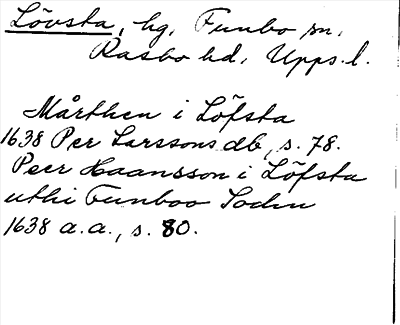 Lövsta, hg, Funbo sn,
Rasbo hd, Upps. l.
Mårthen i Löfsta
1638 Per Larssons db, s. 78.
Peer Haansson i Löfsta
uthi Funboo Sochn
1638 a.a., s. 80.